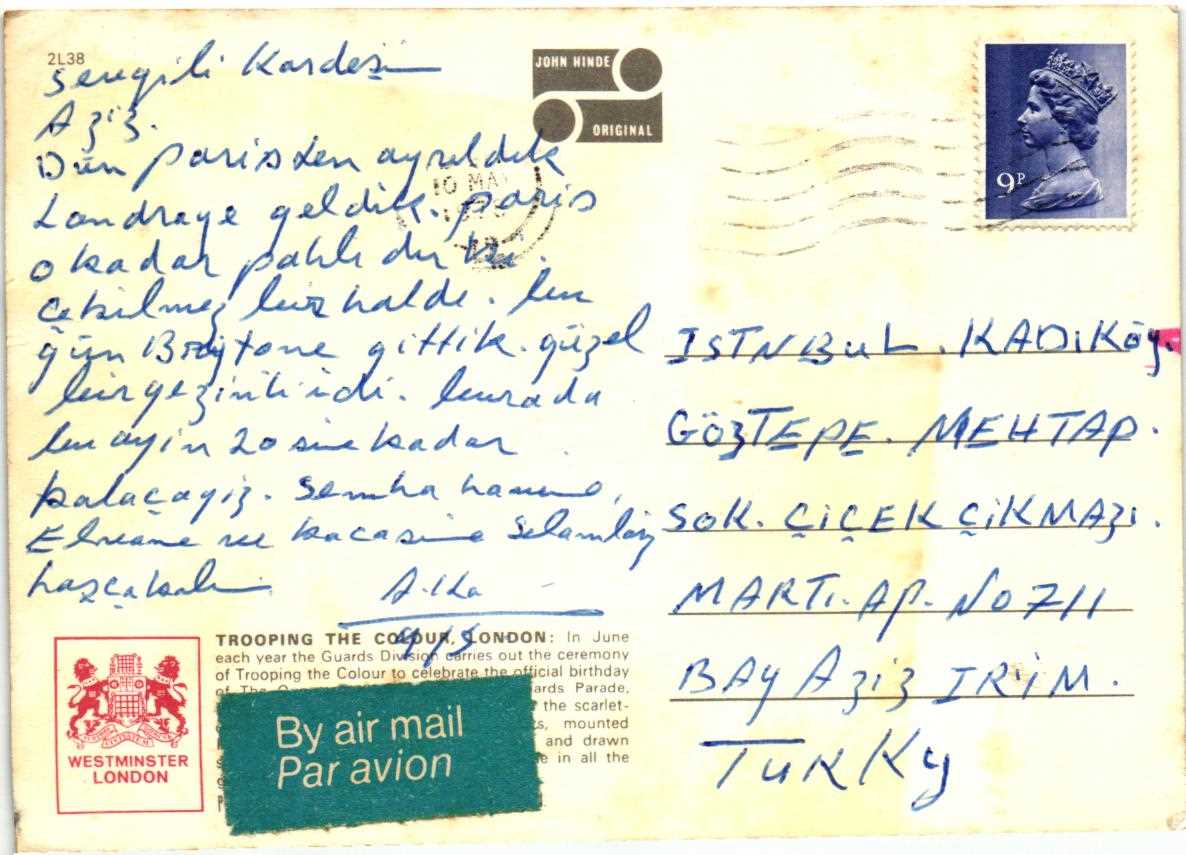 2L38
JOHN HINDE
ORIGINAL
9P
10 MAY
Sevgili Kardeşim
Aziz.
Dün paristen ayrıldık
Londraye geldik. paris
o kadar pahlı dır ki.
Çekilmez bir halde. bu
gün Braytone gittik. güzel
bir gezinti idi. burada
bu ayın 20 sine kadar
kalaçayiz. Semha hanıma,
ve kocasina Selamlar
hoşçakalın
9/5
ISTNBUL. KADiKöy.
GÖZTEPE. MEHTAP.
SOK. ÇiÇEK ÇiKMAZı.
MARTı. AP. No 7/1
BAY AZiZ IRiM.
TURKy
TROOPING THE COLOUR, LONDON: In June
each year the Guards Division carries out the ceremony
of Trooping the Colour to celebrate the official birthday
of The
Parade,
the scarlet-
mounted
and drawn
in all the
By air mail
Par avion
WESTMINSTER
LONDON